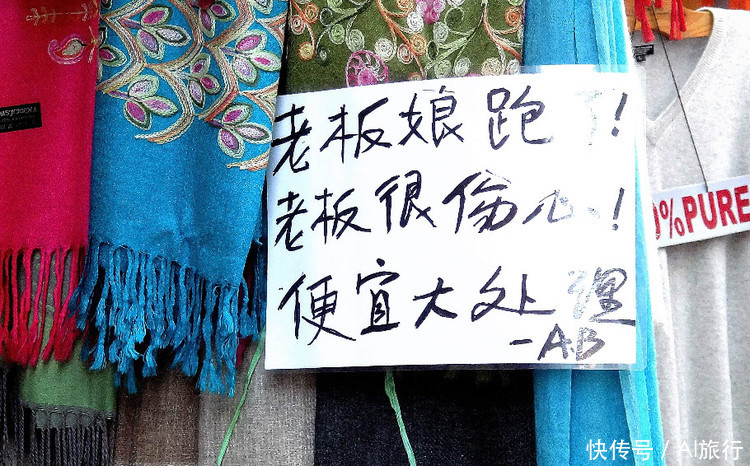 老板娘跑了!
老板很偷心!
便宜大处理
-A.B
%PURE
快传号 / AI旅行